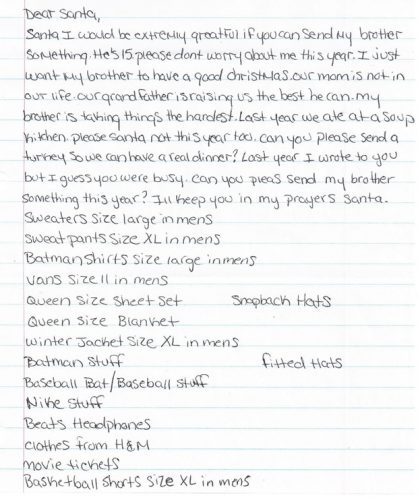 Dear Santa,
Santa I would be extremly greatful if you can send my brother
something. He's 15. please dont worry about me this year. I just
want my brother to have a good christmas. our mom is not in
our life. our grandfather is raising us the best he can. my
brother is taking things the hardest. Last year we ate at a soup
kitchen. please santa not this year too. can you please send a
turkey so we can have a real dinner? Last year I wrote to you
but I guess you were busy. can you pleas send my brother
something this year? I'll keep you in my prayers Santa.
Sweaters size large in mens
sweatpants size XL in mens
Batman shirts size large in mens
vans size 11 in mens
Queen size sheet set snapback Hats
Queen size Blanket
winter Jacket size XL in mens
Batman stuff fitted Hats
Baseball Bat/Baseball stuff
Nike stuff
Beats Headphones
clothes from H&M
movie tickets
Basketball shorts size XL in mens